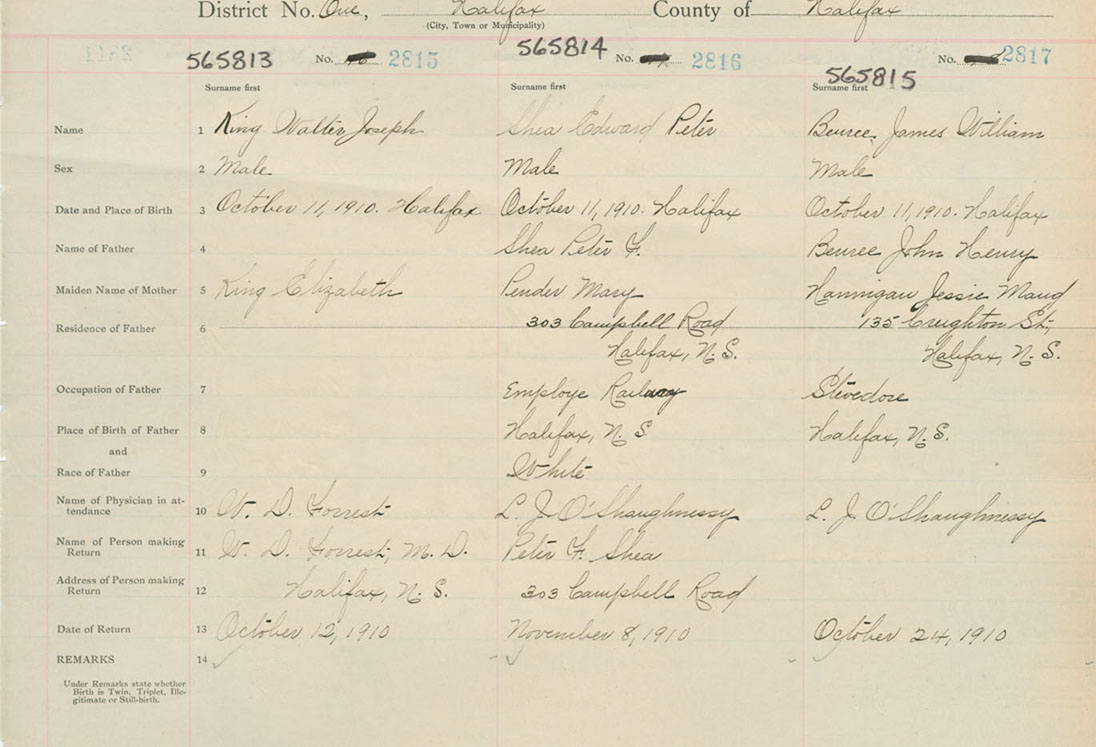 District No. One, Halifax County of Halifax
(City, Town or Municipality)
565813 No. 2815 565814 No. 2816 565815 No. 2817
Surname first Surname first Surname first
Name 1 King Walter Joseph Shea Edward Peter Beuree James William
Sex 2 Male Male Male
Date and Place of Birth 3 October 11, 1910. Halifax October 11, 1910. Halifax October 11, 1910. Halifax
Name of Father 4 Shea Peter F. Beuree John Henry
Maiden Name of Mother 5 King Elizabeth Pender Mary Hannigan Jessie Maud
Residence of Father 6 303 Campbell Road 135 Creighton St,
Halifax, N. S. Halifax, N. S.
Occupation of Father 7 Employe Railway Stevedore
Place of Birth of Father 8 Halifax, N. S. Halifax, N. S.
and
Race of Father 9 White
Name of Physician in at-
tendance 10 W. D. Forrest L. J. O'Shaughnessy L. J. O'Shaughnessy
Name of Person making
Return 11 W. D. Forrest, M. D. Peter F. Shea
Address of Person making
Return 12 Halifax, N. S. 303 Campbell Road
Date of Return 13 October 12, 1910 November 8, 1910 October 24, 1910
REMARKS 14
Under Remarks state whether
Birth is Twin, Triplet, Ille-
gitimate or Still-birth.